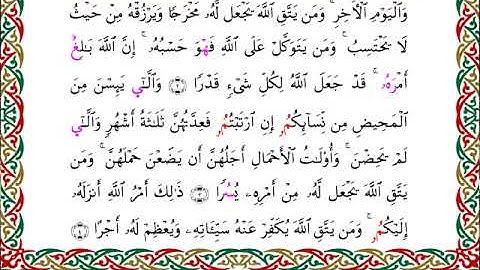 وَالْيَوْمِ الْأَخِرِ ۚ وَمَن يَتَّقِ اللَّهَ يَجْعَل لَّهُۥ مَخْرَجًا وَيَرْزُقْهُ مِنْ حَيْثُ
لَا يَحْتَسِبُ ۚ وَمَن يَتَوَكَّلْ عَلَى اللَّهِ فَهْوَ حَسْبُهُۥ ۚ إِنَّ اللَّهَ بَٰلِغٌ
أَمْرَهُۥ ۚ قَدْ جَعَلَ اللَّهُ لِكُلِّ شَيْءٍ قَدْرًا وَالَّٰٓـِٔي يَئِسْنَ مِنَ
الْمَحِيضِ مِن نِّسَآئِكُمُۥ إِنِ ارْتَبْتُمُۥ فَعِدَّتُهُنَّ ثَلَٰثَةُ أَشْهُرٍ وَالَّٰٓـِٔي
لَمْ يَحِضْنَ ۚ وَأُوْلَٰتُ الْأَحْمَالِ أَجَلُهُنَّ أَن يَضَعْنَ حَمْلَهُنَّ ۚ وَمَن
يَتَّقِ اللَّهَ يَجْعَل لَّهُۥ مِنْ أَمْرِهِۦ يُسُرًا ذَٰلِكَ أَمْرُ اللَّهِ أَنزَلَهُۥ
إِلَيْكُمُۥ ۚ وَمَن يَتَّقِ اللَّهَ يُكَفِّرْ عَنْهُ سَيِّـَٔاتِهِۦ وَيُعْظِمْ لَهُۥ أَجْرًا